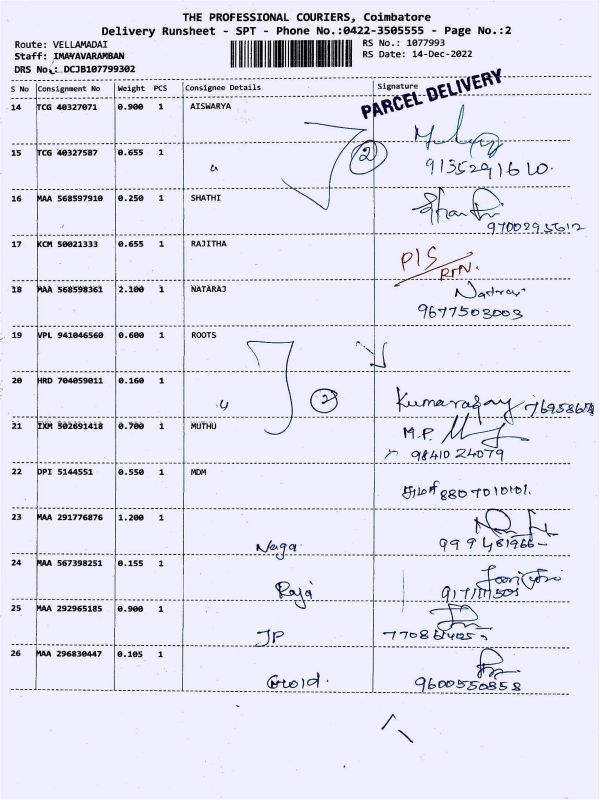 THE PROFESSIONAL COURIERS, Coimbatore
Delivery Runsheet - SPT - Phone No.:0422-3505555 - Page No.:2
Route: VELLAMADAI RS No.: 1077993
Staff: IMAYAVARAMBAN RS Date: 14-Dec-2022
DRS No.: DCJB107799302
S No Consignment No Weight PCS Consignee Details Signature
PARCEL DELIVERY
14 TCG 40327071 0.900 1 AISWARYA
15 TCG 40327587 0.655 1 " 2 9135291610.
16 MAA 568597910 0.250 1 SHATHI
9700293612
17 KCM 50021333 0.655 1 RAJITHA P/S
RTN.
18 MAA 568598361 2.100 1 NATARAJ
9677503003
19 VPL 941046560 0.600 1 ROOTS
20 HRD 704059011 0.160 1 " 2 Kumaragay
21 IXM 502691418 0.700 1 MUTHU M.P.
9841024079
22 DPI 5144551 0.550 1 MDM
8807010101.
23 MAA 291776876 1.200 1 Naga
24 MAA 567398251 0.155 1 Raja
25 MAA 292965185 0.900 1 JP
26 MAA 296830447 0.105 1
9600550358